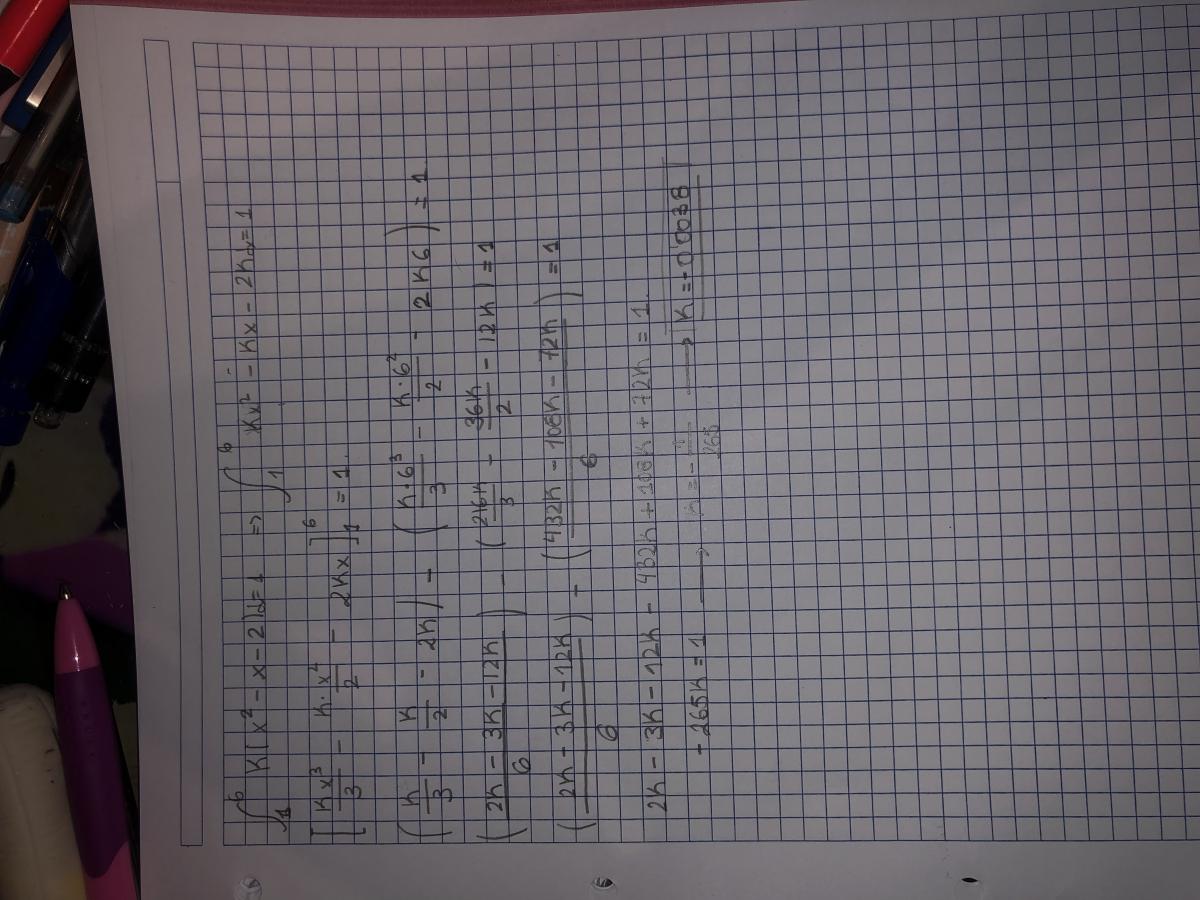 ∫₁⁶ K(x² - x - 2)d = 1 => ∫₁⁶ Kx² - Kx - 2K dx = 1
[Kx³/3 - K·x²/2 - 2Kx]₁⁶ = 1
(K/3 - K/2 - 2K) - (K·6³/3 - K·6²/2 - 2K6) = 1
(2K - 3K - 12K / 6) - (216K/3 - 36K/2 - 12K) = 1
(2K - 3K - 12K / 6) - (432K - 108K - 72K / 6) = 1
2K - 3K - 12K - 432K + 108K + 72K = 1
- 265K = 1 → K = - 1/265 → K = - 0'0038